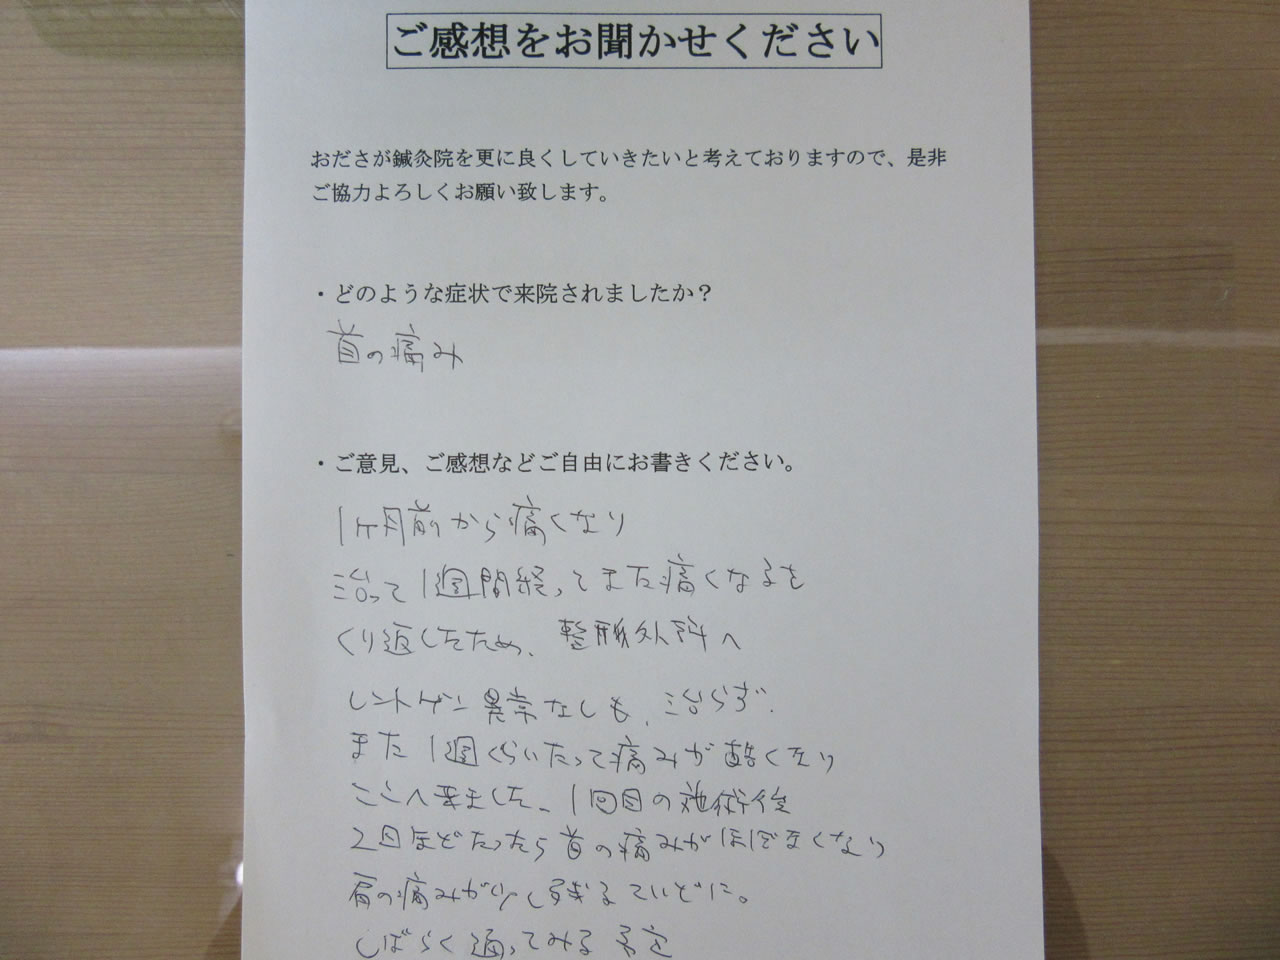 ご感想をお聞かせください
おださが鍼灸院を更に良くしていきたいと考えておりますので、是非
ご協力よろしくお願い致します。
・どのような症状で来院されましたか？
首の痛み
・ご意見、ご感想などご自由にお書きください。
1ヶ月前から痛くなり
治って1週間経ってまた痛くなるを
くり返したため、整形外科へ
レントゲン異常なしも、治らず、
また1週ぐらいたって痛みが酷くなり
ここへ来ました。1回目の施術後
2日ほどたったら首の痛みがほぼなくなり
肩の痛みが少し残るていどに。
しばらく通ってみる予定